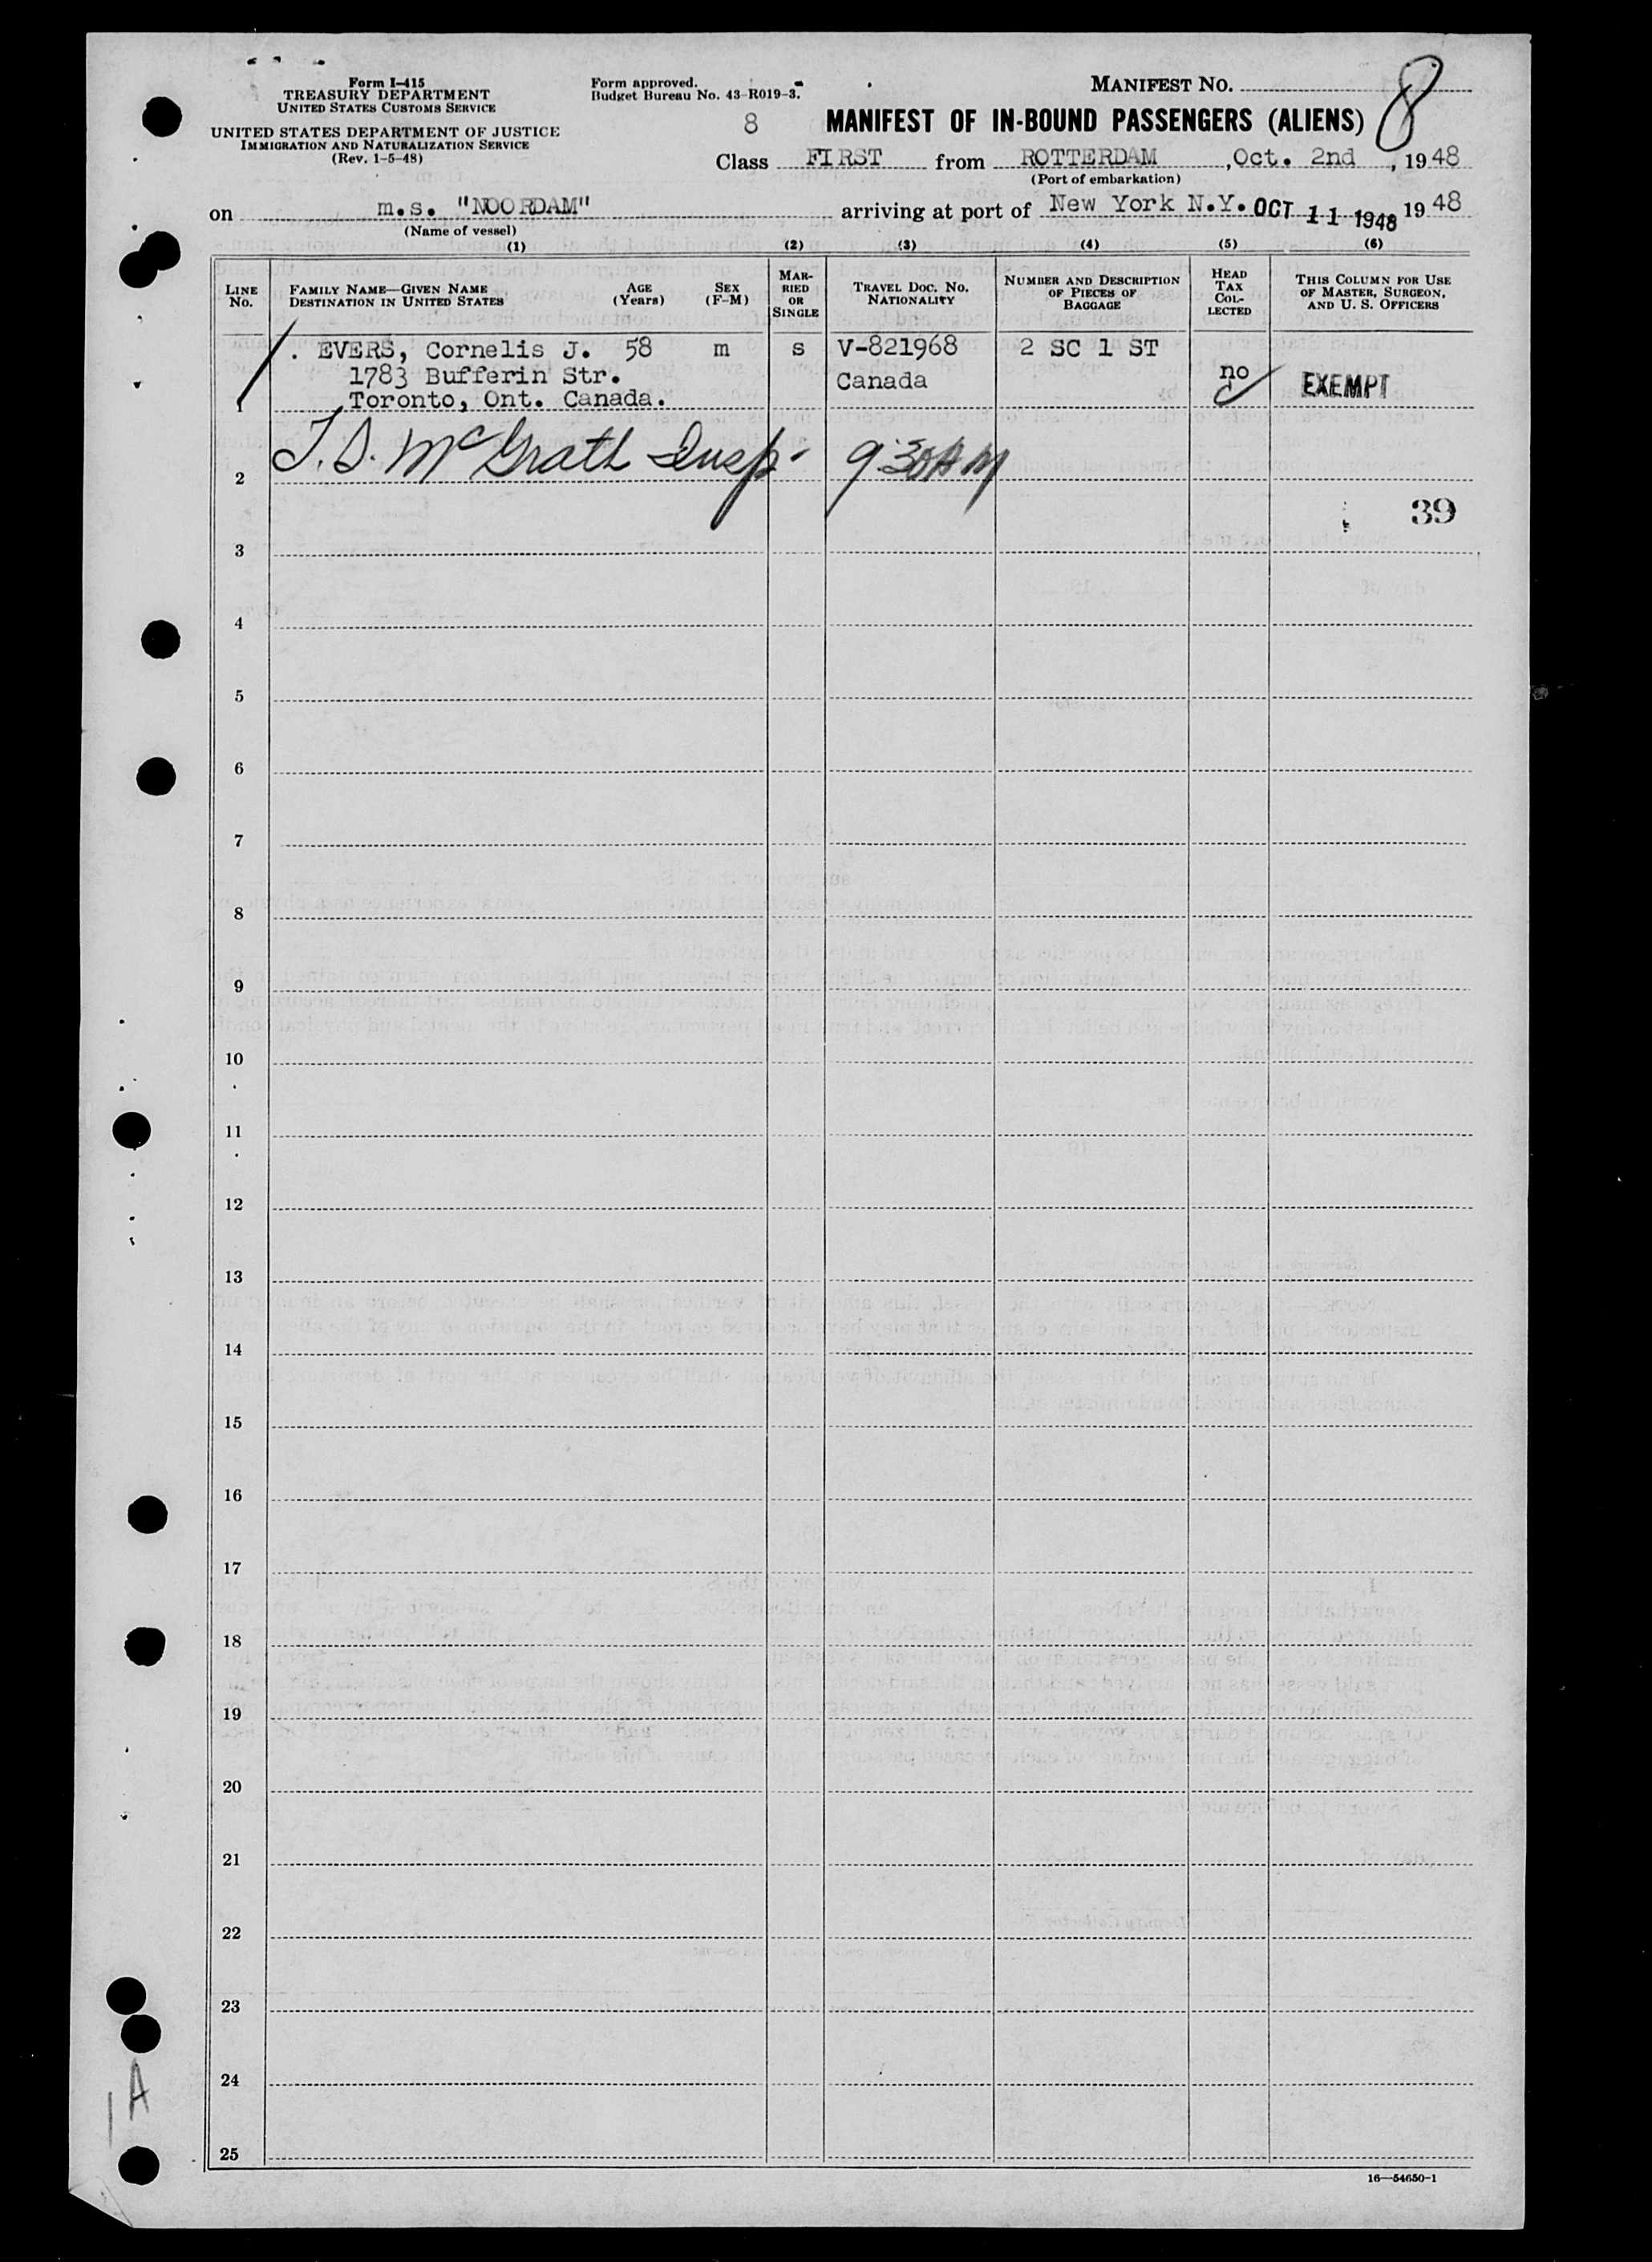 Form I-415
TREASURY DEPARTMENT
UNITED STATES CUSTOMS SERVICE
UNITED STATES DEPARTMENT OF JUSTICE
IMMIGRATION AND NATURALIZATION SERVICE
(Rev. 1-5-48)
Form approved.
Budget Bureau No. 43-R019-3.
MANIFEST NO.
8
8
MANIFEST OF IN-BOUND PASSENGERS (ALIENS)
Class FIRST from ROTTERDAM, Oct. 2nd, 1948
(Port of embarkation)
on m.s. "NOORDAM" arriving at port of New York N.Y. OCT 11 1948 1948
(Name of vessel)
(1) (2) (3) (4) (5) (6)
LINE No.
FAMILY NAME—GIVEN NAME
DESTINATION IN UNITED STATES
AGE (Years)
SEX (F-M)
MAR-RIED OR SINGLE
TRAVEL DOC. NO.
NATIONALITY
NUMBER AND DESCRIPTION OF PIECES OF BAGGAGE
HEAD TAX COL-LECTED
THIS COLUMN FOR USE OF MASTER, SURGEON, AND U. S. OFFICERS
. EVERS, Cornelis J. 58 m s V-821968 2 SC 1 ST
1783 Bufferin Str. Canada no EXEMPT
1 Toronto, Ont. Canada.
2 T. S. McGrath Insp. 9:30 AM
39
3
4
5
6
7
8
9
10
11
12
13
14
15
16
17
18
19
20
21
22
23
24
25
1A
16—54650-1